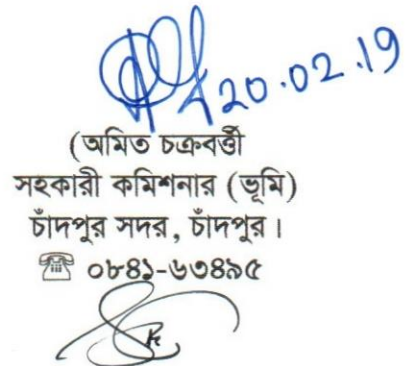 20.02.19
(অমিত চক্রবর্ত্তী
সহকারী কমিশনার (ভূমি)
চাঁদপুর সদর, চাঁদপুর।
☎ ০৮৪১-৬৩৪৯৫